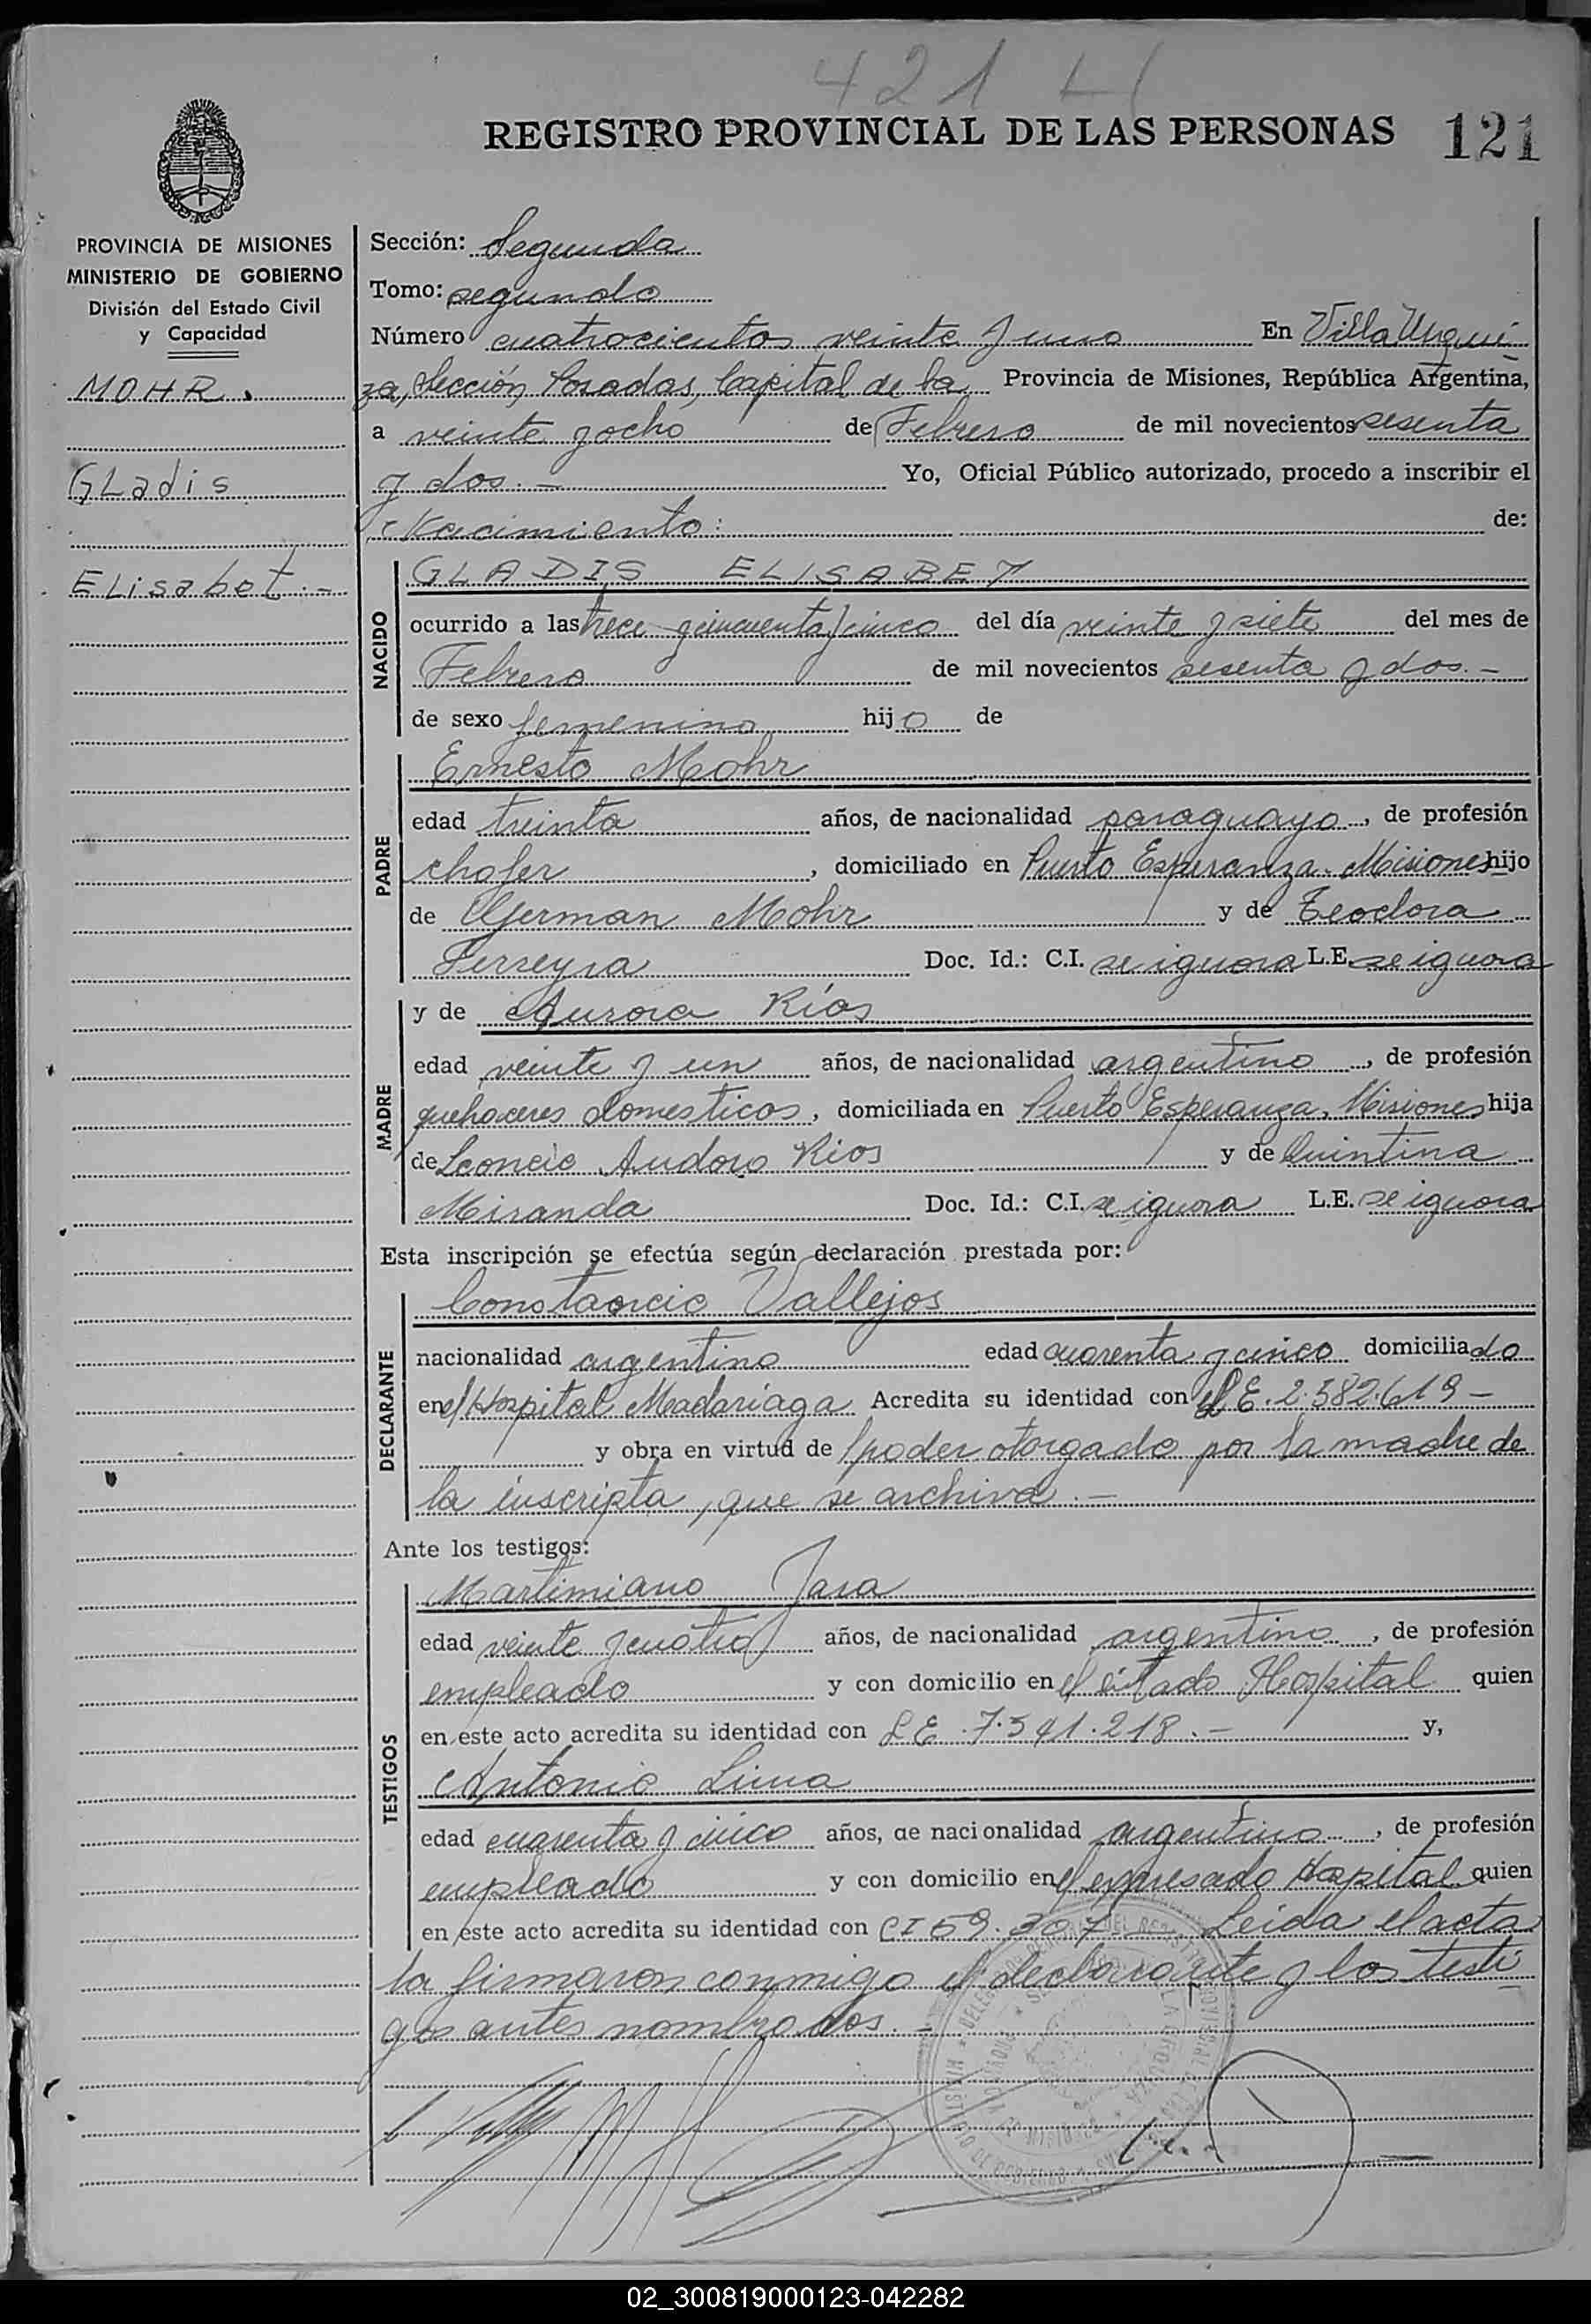 421 H
REGISTRO PROVINCIAL DE LAS PERSONAS 121
PROVINCIA DE MISIONES
MINISTERIO DE GOBIERNO
División del Estado Civil
y Capacidad
MOHR.
GLadis
ELisabet.-
Sección: Segunda
Tomo: segundo
Número cuatrocientos veinte y uno En Villa Urqui
za, Sección Posadas, Capital de la Provincia de Misiones, República Argentina,
a veinte y ocho de Febrero de mil novecientos sesenta
y dos.- Yo, Oficial Público autorizado, procedo a inscribir el
Nacimiento: de:
NACIDO
GLADIS ELISABET
ocurrido a las trece y cincuenta y cinco del día veinte y siete del mes de
Febrero de mil novecientos sesenta y dos.-
de sexo femenino hijo de
PADRE
Ernesto Mohr
edad treinta años, de nacionalidad paraguayo, de profesión
chofer, domiciliado en Puerto Esperanza. Misiones hijo
de German Mohr y de Teodora
Ferreyra Doc. Id.: C.I. se ignora L.E. se ignora
MADRE
y de Aurora Ríos
edad veinte y un años, de nacionalidad argentino, de profesión
quehaceres domesticos, domiciliada en Puerto Esperanza, Misiones hija
de Leoncio Audoro Rios y de Quintina
Miranda Doc. Id.: C.I. se ignora L.E. se ignora
Esta inscripción se efectúa según declaración prestada por:
DECLARANTE
Constancio Vallejos
nacionalidad argentino edad cuarenta y cinco domiciliado
en el Hospital Madariaga Acredita su identidad con LE. 2.382.619-
y obra en virtud de poder otorgado por la madre de
la inscripta, que se archiva.-
Ante los testigos:
TESTIGOS
Martimiano Jara
edad veinte y cuatro años, de nacionalidad argentino, de profesión
empleado y con domicilio en el citado Hospital quien
en este acto acredita su identidad con LE. 7.541.218.- y,
Antonio Lima
edad cuarenta y cinco años, de nacionalidad argentino, de profesión
empleado y con domicilio en el expresado Hospital quien
en este acto acredita su identidad con CI 59.307- Leida el acta
la firmaron conmigo el declarante y los testi
gos antes nombrados.-
02_300819000123-042282